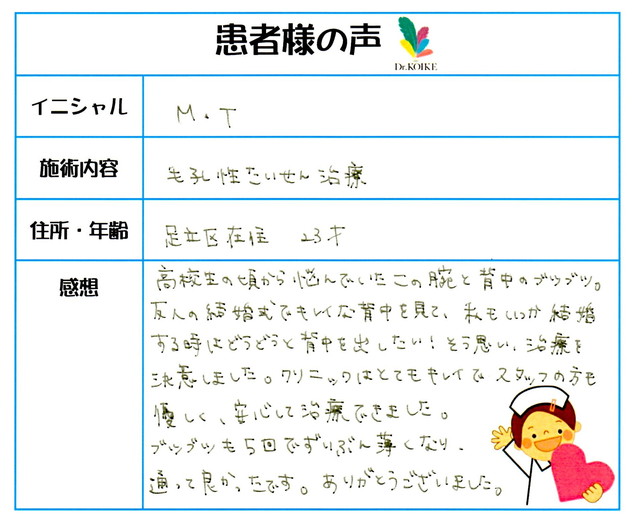 患者様の声
Dr.KOIKE
イニシャル
M・T
施術内容
毛孔性たいせん治療
住所・年齢
足立区在住 23才
感想
高校生の頃から悩んでいたこの腕と背中のブツブツ。
友人の結婚式でキレイな背中を見て、私もいつか結婚
する時はどうどうと背中を出したい！そう思い、治療を
決意しました。クリニックはとてもキレイでスタッフの方も
優しく、安心して治療できました。
ブツブツも5回でずいぶん薄くなり、
通って良かったです。ありがとうございました。